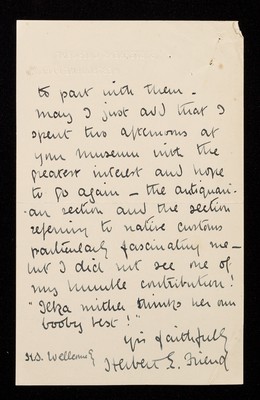 to part with them -
May I just add that I
spent two afternoons at
your museum with the
greatest interest and hope
to go again - the antiquari-
-an section and the section
referring to native customs
particularly fascinating me -
but I did not see one of
my humble contributions!
"Ilka mither thinks her own
booby best!"
yrs faithfully
Herbert E. Friend
H.S. Wellcome Esq